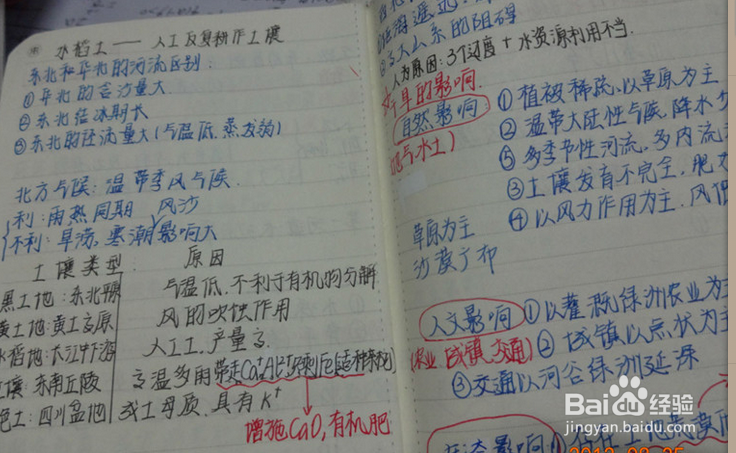 水稻土——人工反复耕作土壤
东北和华北的河流区别:
①华北的含沙量大
②东北结冰期长
③东北的径流量大(气温低.蒸发弱)
北方气候:温带季风气候.
利:雨热同期 风沙
不利:旱涝、寒潮影响大
土壤类型: 原因
黑土地:东北 气温低.不利于有机物分解
黄土地:黄土高原 风的吹蚀作用
水稻地:长江中下游 人工工,产量高
壤 东南丘陵 高温多雨带走
色土:四川盆地 成土母质.具有K⁺
增施CaO,有机肥
大山系的阻碍
人为原因:3个过度+水资源利用不当.
旱的影响.
自然影响
气水土)
①植被稀疏,以草原为主
②温带大陆性气候.降水
⑤多季节性河流,多内流
③土壤发育不完全,肥
④以风力作用为主.风
草原为主
沙漠广布
人文影响 ①以灌溉绿洲农业为主
农业.城镇.交通) ②城镇以点状为主
③交通以河谷绿洲延深
影响
Baidu经验
jingyan.baidu.com